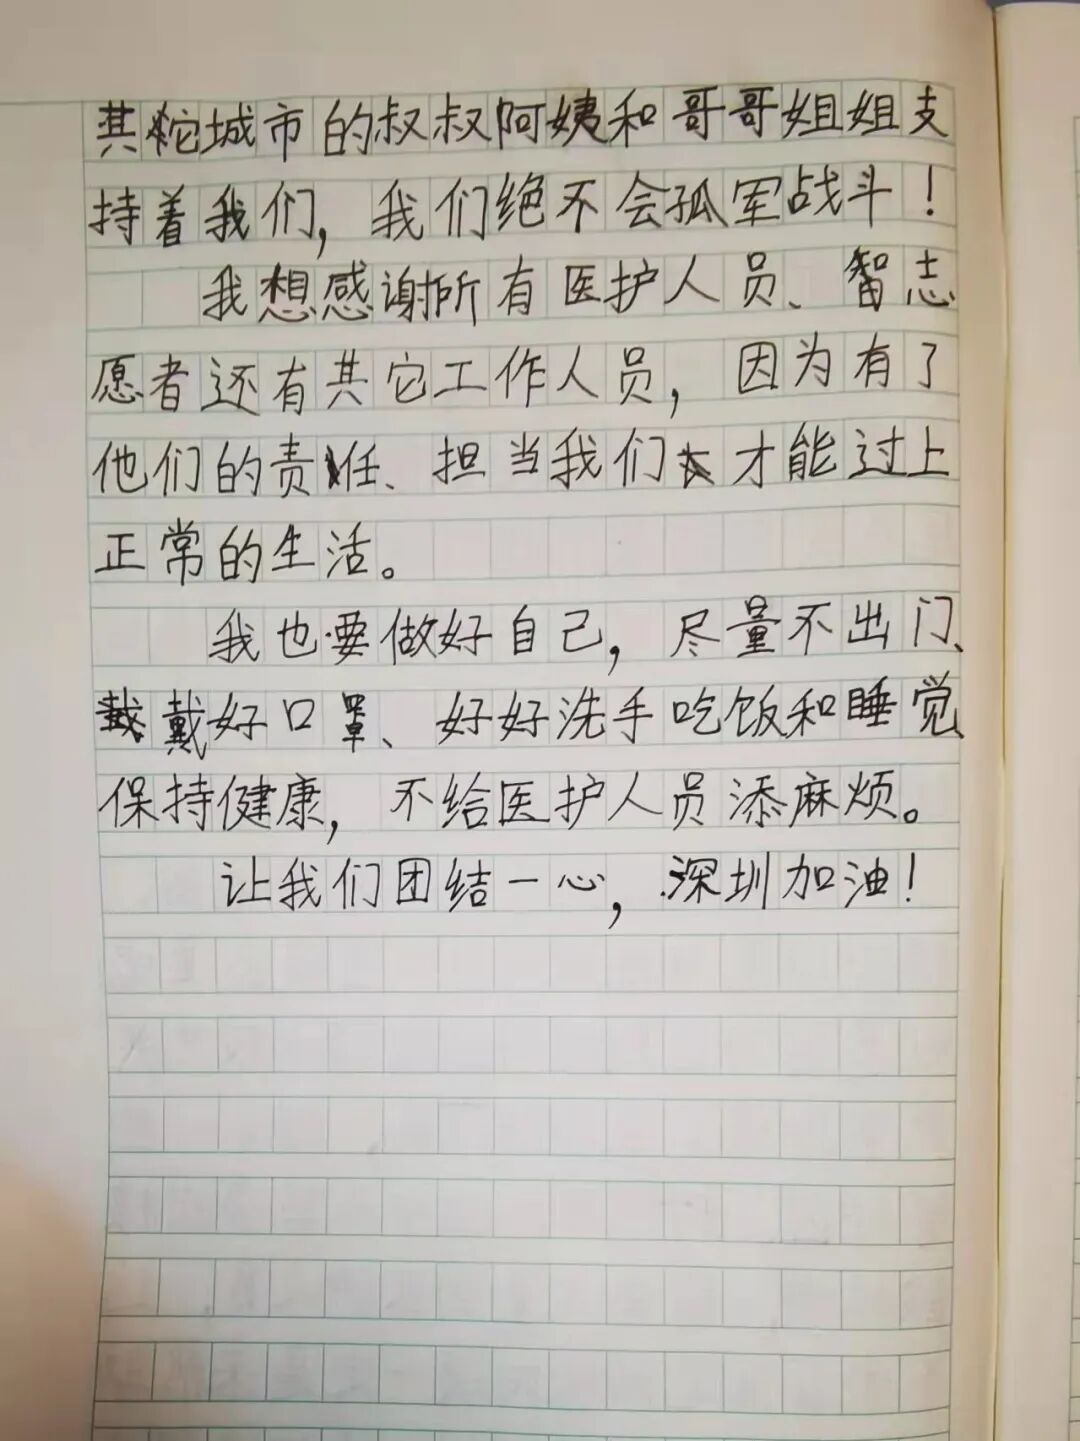 其它城市的叔叔阿姨和哥哥姐姐支
持着我们，我们绝不会孤军战斗！
我想感谢所有医护人员、智志
愿者还有其它工作人员，因为有了
他们的责任、担当我们才能过上
正常的生活。
我也要做好自己，尽量不出门、
戴好口罩、好好洗手吃饭和睡觉
保持健康，不给医护人员添麻烦。
让我们团结一心，深圳加油！